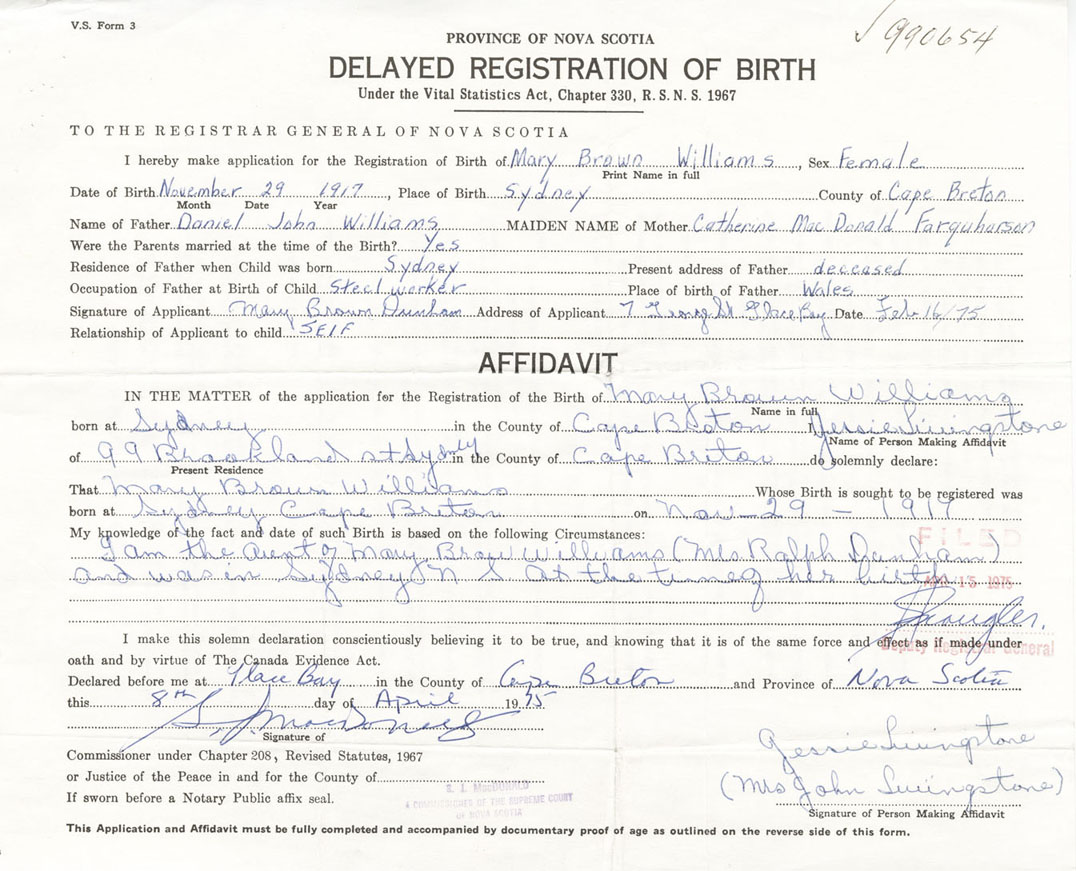 V.S. Form 3
√ 990654
PROVINCE OF NOVA SCOTIA
DELAYED REGISTRATION OF BIRTH
Under the Vital Statistics Act, Chapter 330, R.S.N.S. 1967
TO THE REGISTRAR GENERAL OF NOVA SCOTIA
I hereby make application for the Registration of Birth of Mary Brown Williams, Sex Female
Print Name in full
Date of Birth November 29 1917, Place of Birth Sydney County of Cape Breton
Month Date Year
Name of Father Daniel John Williams MAIDEN NAME of Mother Catherine MacDonald Farquharson
Were the Parents married at the time of the Birth? Yes
Residence of Father when Child was born Sydney Present address of Father deceased
Occupation of Father at Birth of Child Steel worker Place of birth of Father Wales
Signature of Applicant Mary Brown Dunham Address of Applicant 7 St. Glace Bay Date Feb 16/75
Relationship of Applicant to child SElF
AFFIDAVIT
IN THE MATTER of the application for the Registration of Birth of Mary Brown Williams
Name in full
born at Sydney in the County of Cape Breton I, Jessie Livingstone
Name of Person Making Affidavit
of 99 Brookland st Sydney in the County of Cape Breton do solemnly declare:
Present Residence
That Mary Brown Williams Whose Birth is sought to be registered was
born at Sydney Cape Breton on Nov 29 - 1917
My knowledge of the fact and date of such Birth is based on the following Circumstances:
FILED
I am the Aunt of Mary Brow Williams (Mrs Ralph Dunham)
and was in Sydney N S at the time of her birth
15 1975
I make this solemn declaration conscientiously believing it to be true, and knowing that it is of the same force and effect as if made under
Deputy Registrar General
oath and by virtue of The Canada Evidence Act.
Declared before me at Glace Bay in the County of Cape Breton and Province of Nova Scotia
this 8th day of April 1975
S. J. MacDonald
Signature of
Jessie Livingstone
Commissioner under Chapter 208, Revised Statutes, 1967
or Justice of the Peace in and for the County of
(Mrs John Livingstone)
S. J. MacDONALD
A COMMISSIONER OF THE SUPREME COURT
OF NOVA SCOTIA
If sworn before a Notary Public affix seal.
Signature of Person Making Affidavit
This Application and Affidavit must be fully completed and accompanied by documentary proof of age as outlined on the reverse side of this form.